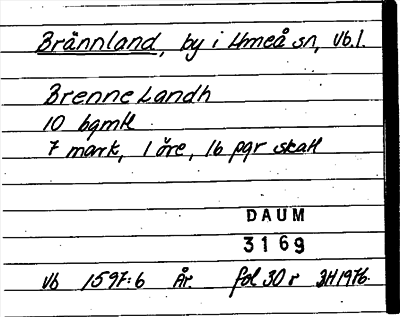 Brännland, by i Umeå sn, Vb.l.
Brenne Landh
10 bgmtl
7 mark, 1 öre, 16 pgr skatt
DAUM
3169
Vb 1597:6 År fol 30 r BH1976.